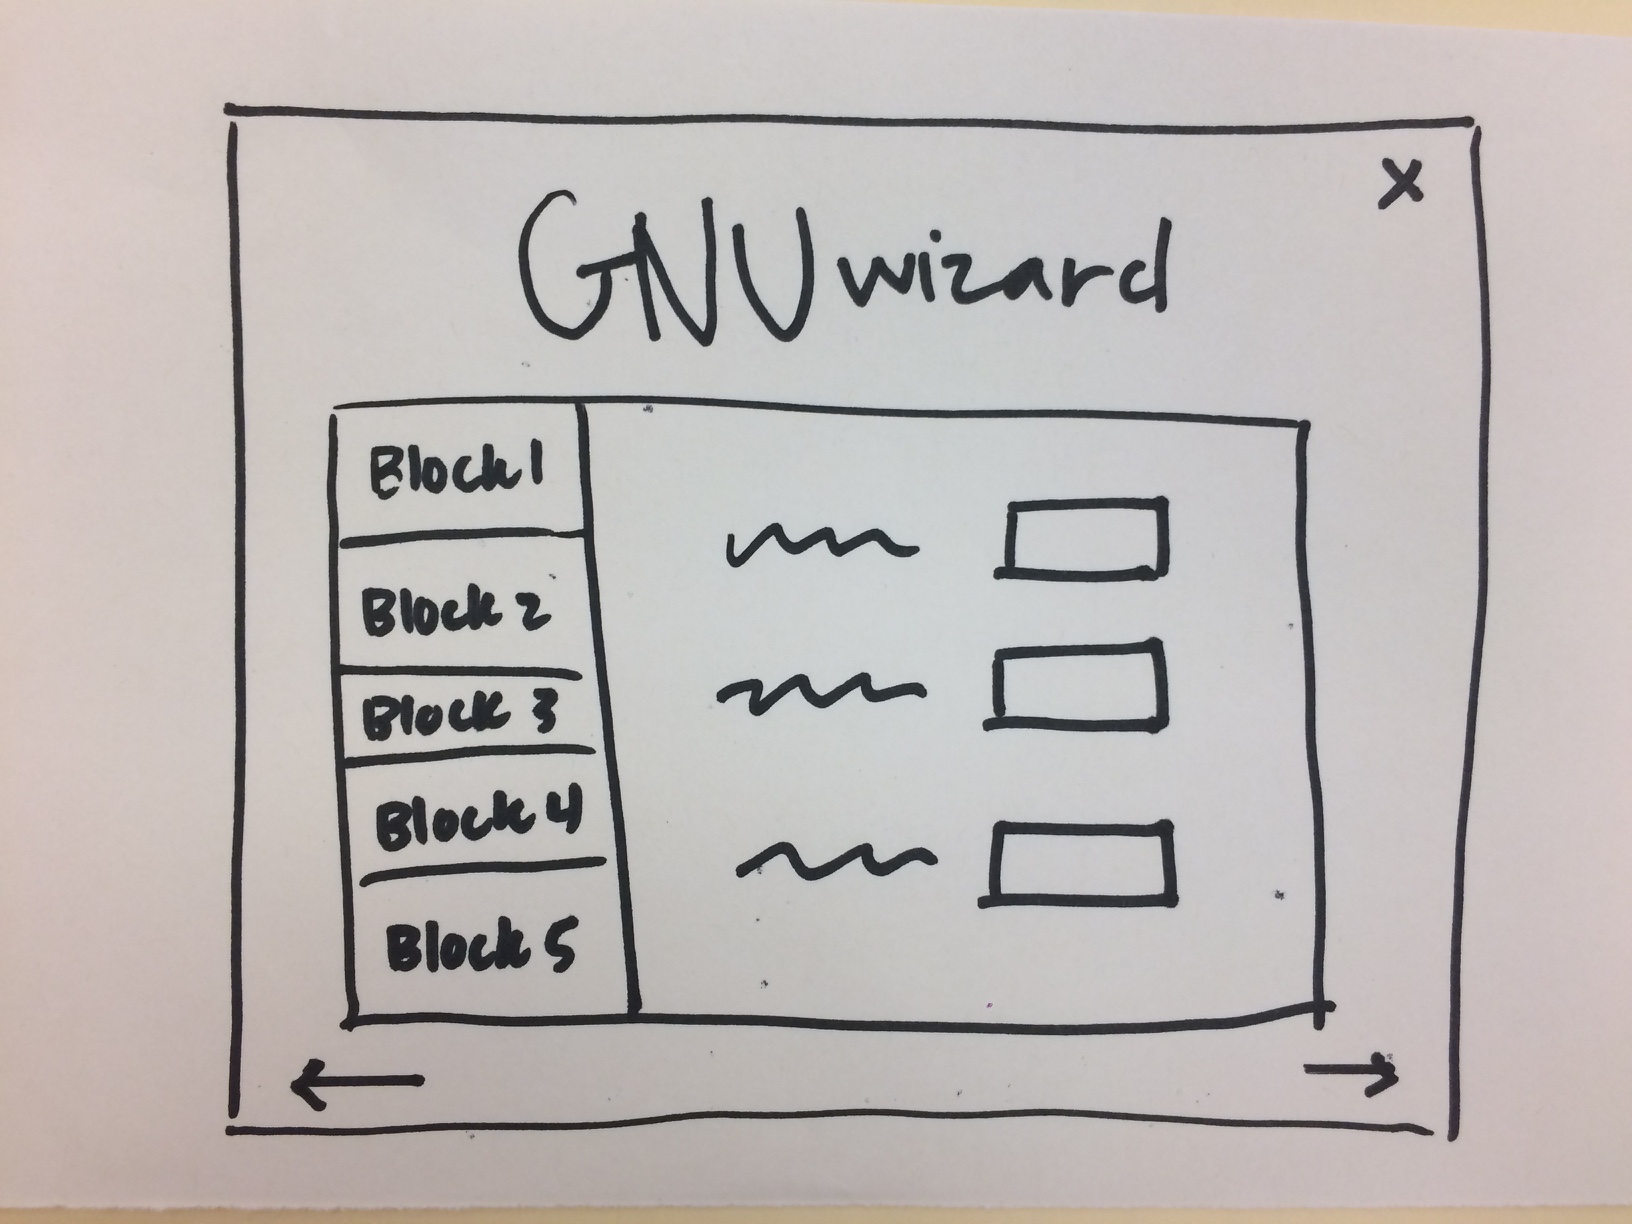 X
GNU wizard
Block 1
Block 2
Block 3
Block 4
Block 5